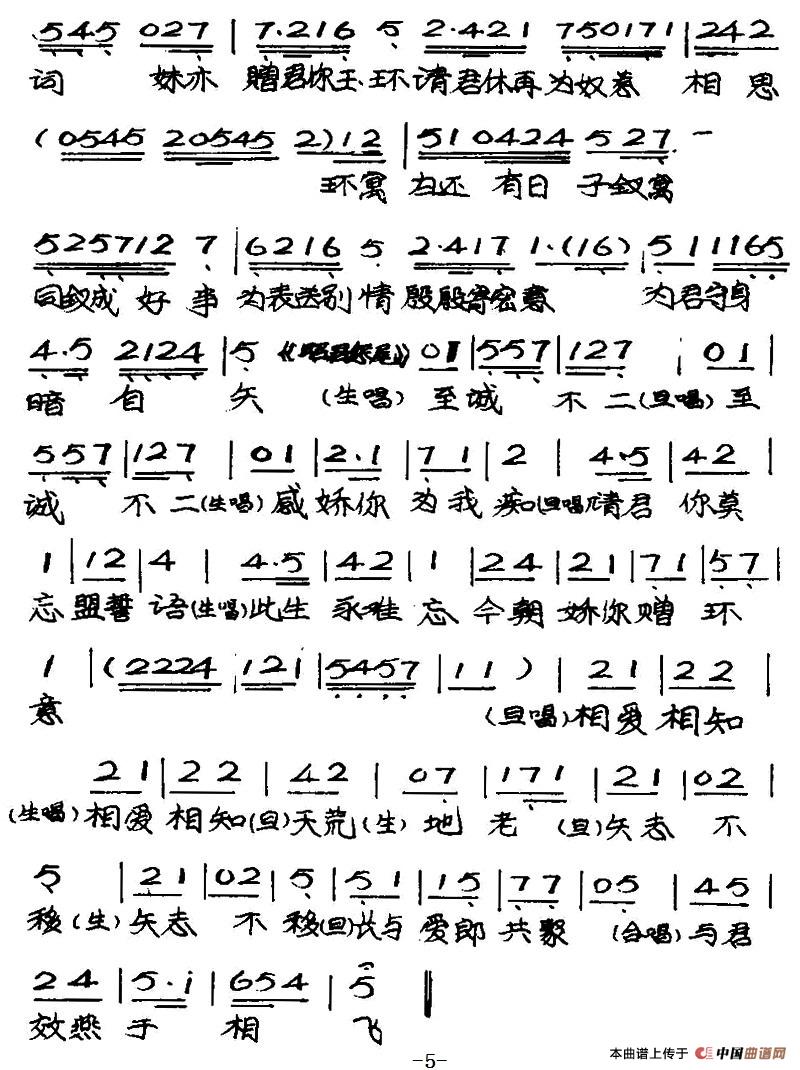 5 4·5 0 2 7 | 7·2 1 6 5 2·4 2 1 7 5 0 1 7 1 | 2 4 2
词 妹亦 赠君你玉环请君休再为奴惹 相思
(0 5 4 5 2 0 5 4 5 2) 1 2 | 5 1 0 4 2 4 5 2 7·
环寓 有日 子钗寓
5 2 5 7 1 2 7 | 6 2 1 6 5 2·4 1 7 1·(1 6) 5 1 1 1 6 5
同钗成好事 为表送别情殷殷寄密意 为君守身
4·5 2 1 2 4 | 5 0 1 | 5 5 7 | 1 2 7 | 0 1 |
暗自矢 (生唱) 至诚 不二(旦唱)至
5 5 7 | 1 2 7 | 0 1 | 2·1 | 7 1 | 2 | 4·5 | 4 2 |
诚 不二(生唱)感娇你为我痴(旦唱)请君你莫
1 | 1 2 | 4 | 4·5 | 4 2 | 1 | 2 4 | 2 1 | 7 1 | 5 7 |
忘盟誓语(生唱)此生永难忘今朝娇你赠环
1 | (2 2 2 4 | 1 2 1 | 5 4 5 7 | 1 1) | 2 1 | 2 2 |
意 (旦唱)相爱相知
2 1 | 2 2 | 4 2 | 0 7 | 1 7 1 | 2 1 | 0 2 |
(生唱)相爱相知(旦)天荒(生)地老(旦)矢志不
5 | 2 1 | 0 2 | 5 | 5 1 | 1 5 | 7 7 | 0 5 | 4 5 |
移(生)矢志不移(旦)长与爱郎共聚(合唱)与君
2 4 | 5·i | 6 5 4 | 5 ‖
效燕于相飞
-5-
本曲谱上传于 中国曲谱网